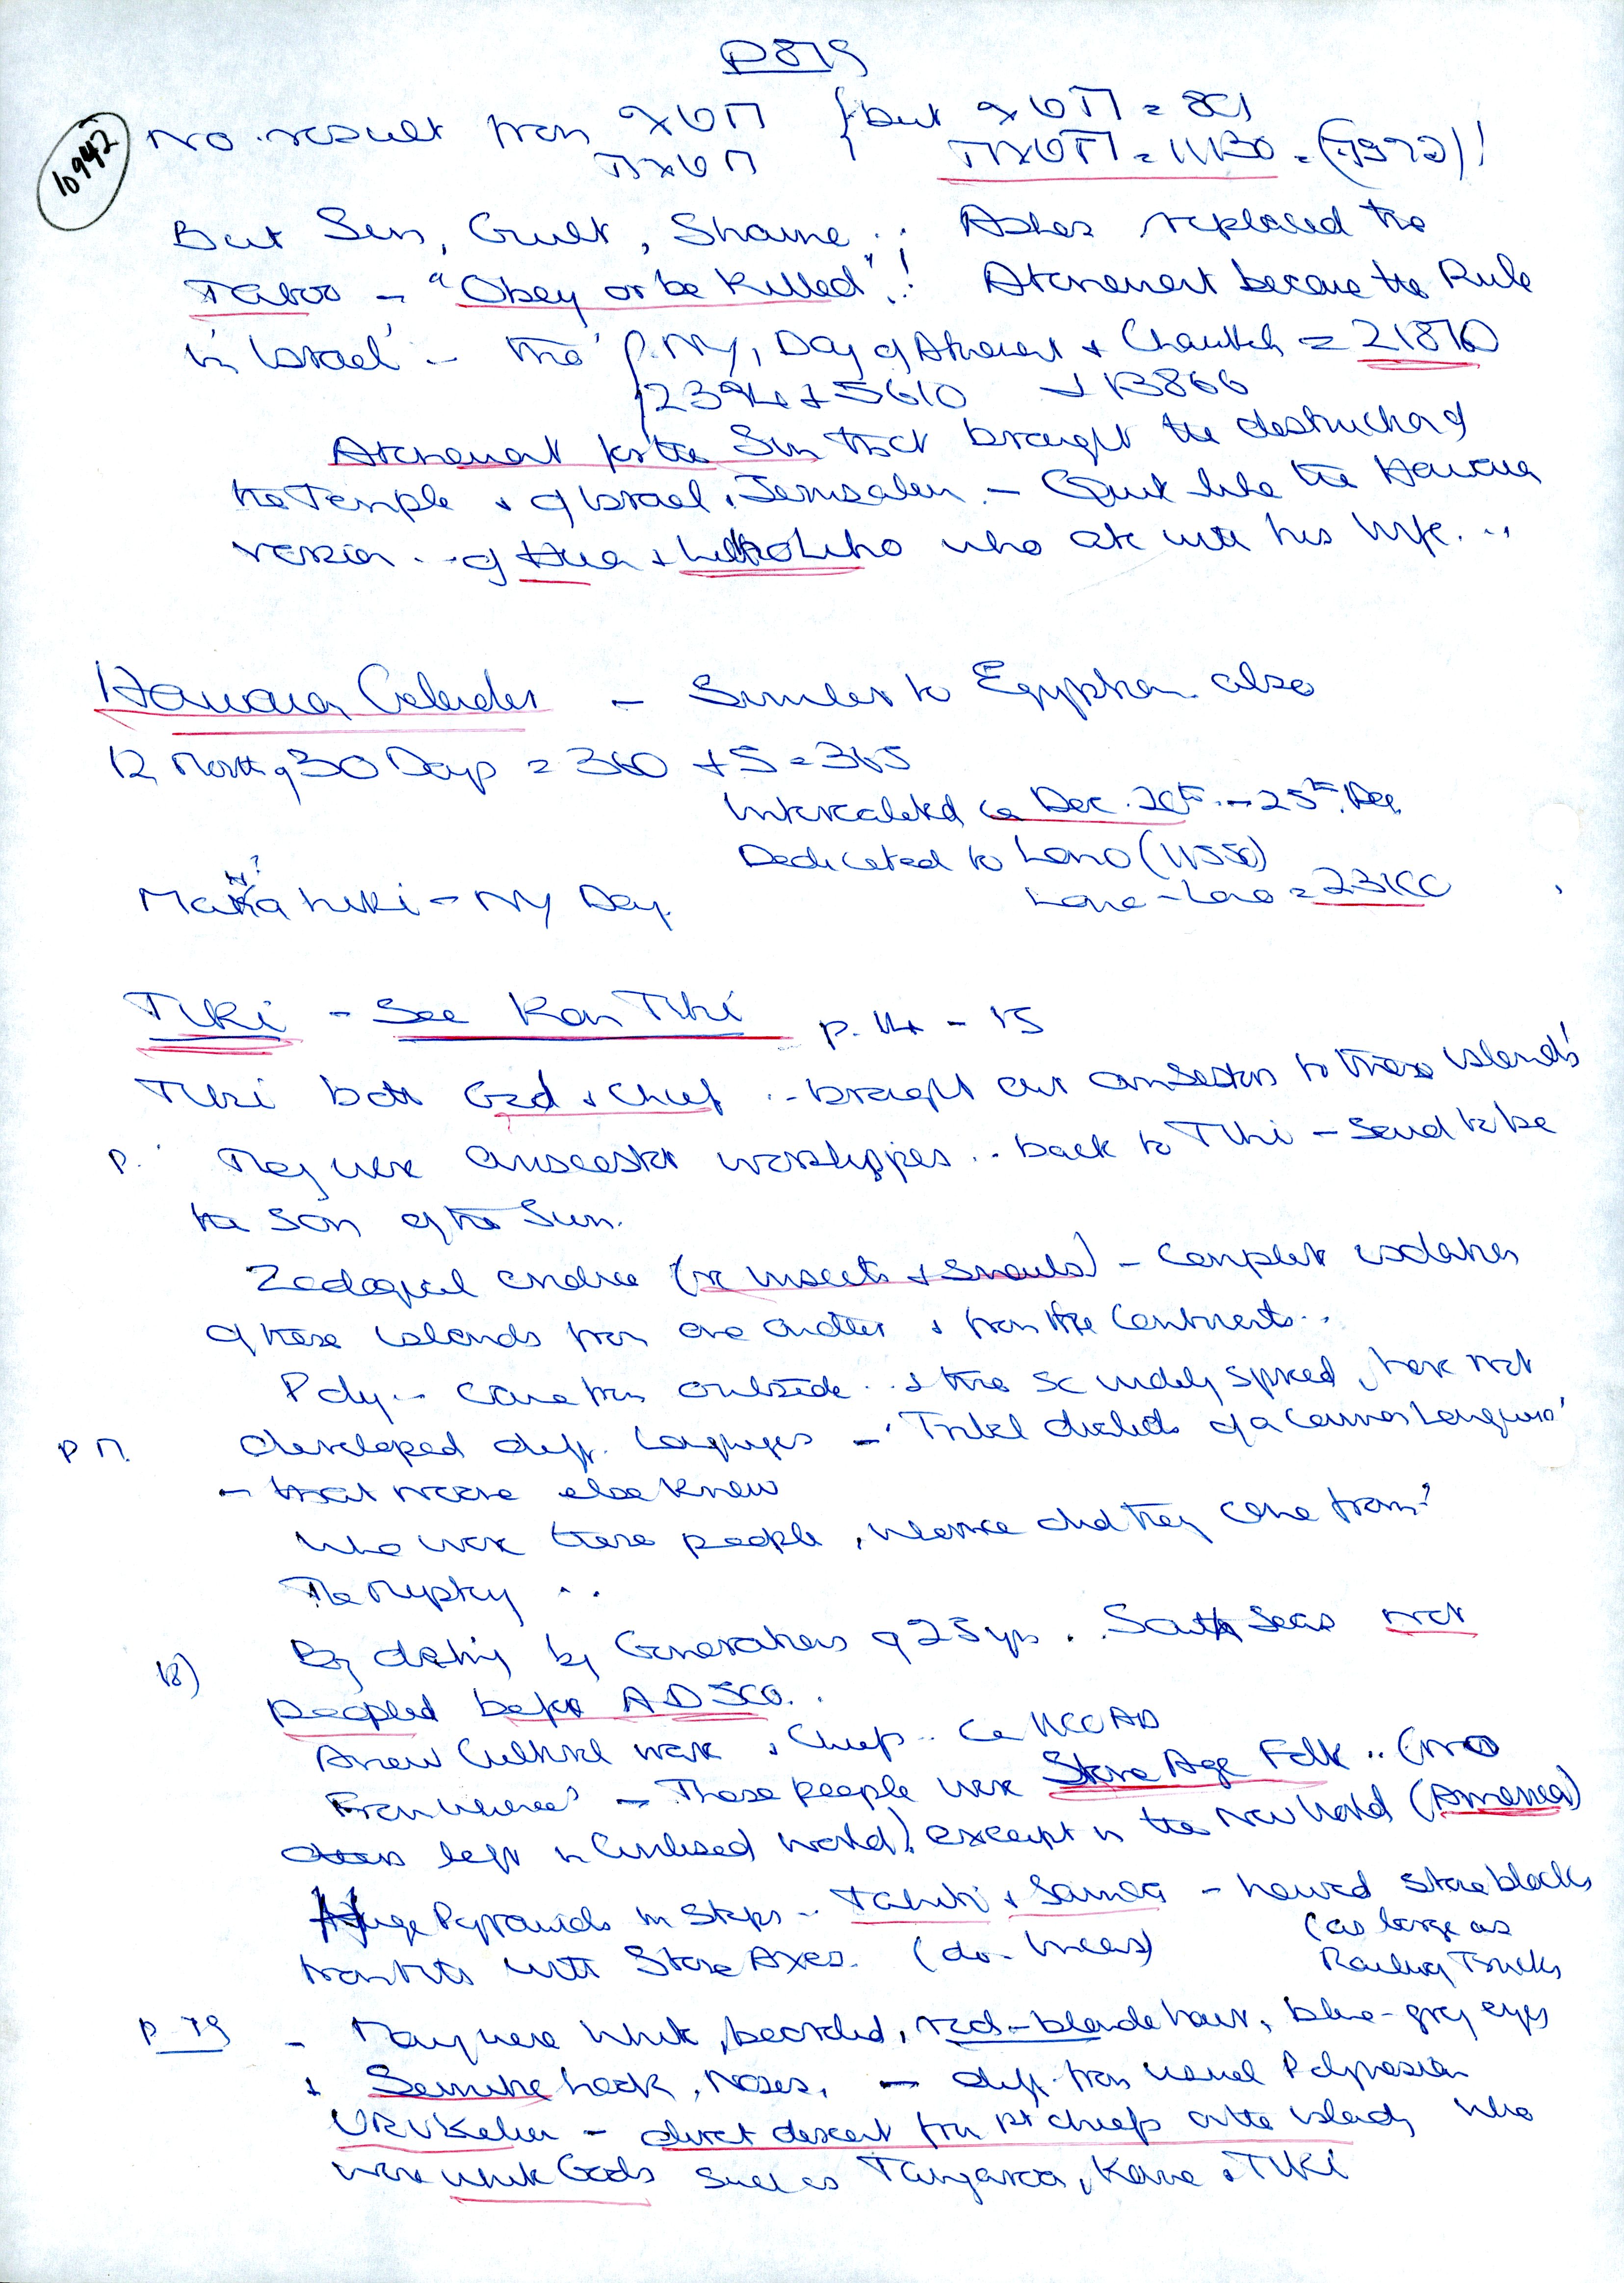 P819
10942
No result from
{but = 801
But Sin, Guilt, Shame .. Ashes replaced the
Taboo - "Obey or be Killed"! Atonement became the Rule
'in Israel' - The {P. NY, Day of Atonement + Chanukah = 21870
2394 + 5610 + 13866
Atonement for the Sin that brought the destruction of
the Temple & of Israel, Jerusalem - Quite like the Hawaiian
version .. of & Liholiho who ate with his Wife...
Hawaiian Calendar - Similar to Egyptian also
12 Months of 30 Days = 360 + 5 = 365
Intercalated ca Dec. 20th - 25th Dec.
Dedicated to Lono (1155)
N?
Makahiki - NY Day.
Lono-Lono =
Tiki - See Kon Tiki p. 14 - 15
Tiki both God & Chief .. brought our ansestors to these islands'
p. They were anscestor worshippers .. back to Tiki - said to be
the son of the Sun.
Zoological evidence (re insects & snails) - complete isolation
of these islands from one another & from the Continents..
Poly .. came from outside .. & tho so widely spread, have not
p 17. developed diff. languages - 'Tribal dialects of a common language'
- that noone else knew
Who were these people, whence did they come from?
The Mystery ..
18) By dating by Generations of 25 yrs .. South Seas not
peopled before AD 500..
A new Cultural wave, & Chiefs .. ca 1100 AD
From whence? - These people were Stone Age Folk .. (no
others left in Civilised world) except in the New World (America)
Huge Pyramids in Steps - Tahiti & Samoa - hewed stone blocks
(as large as
from with Stone Axes. (do - Incas)
Railway Trucks
p 19 - Many were White, bearded, red-blonde hair, blue-grey eyes
& Semitic hook, Noses, - diff. from usual Polynesian
URUKehu - direct descent from 1st chiefs on the islands, who
were white Gods such as Tangaroa, Kane & Tiki